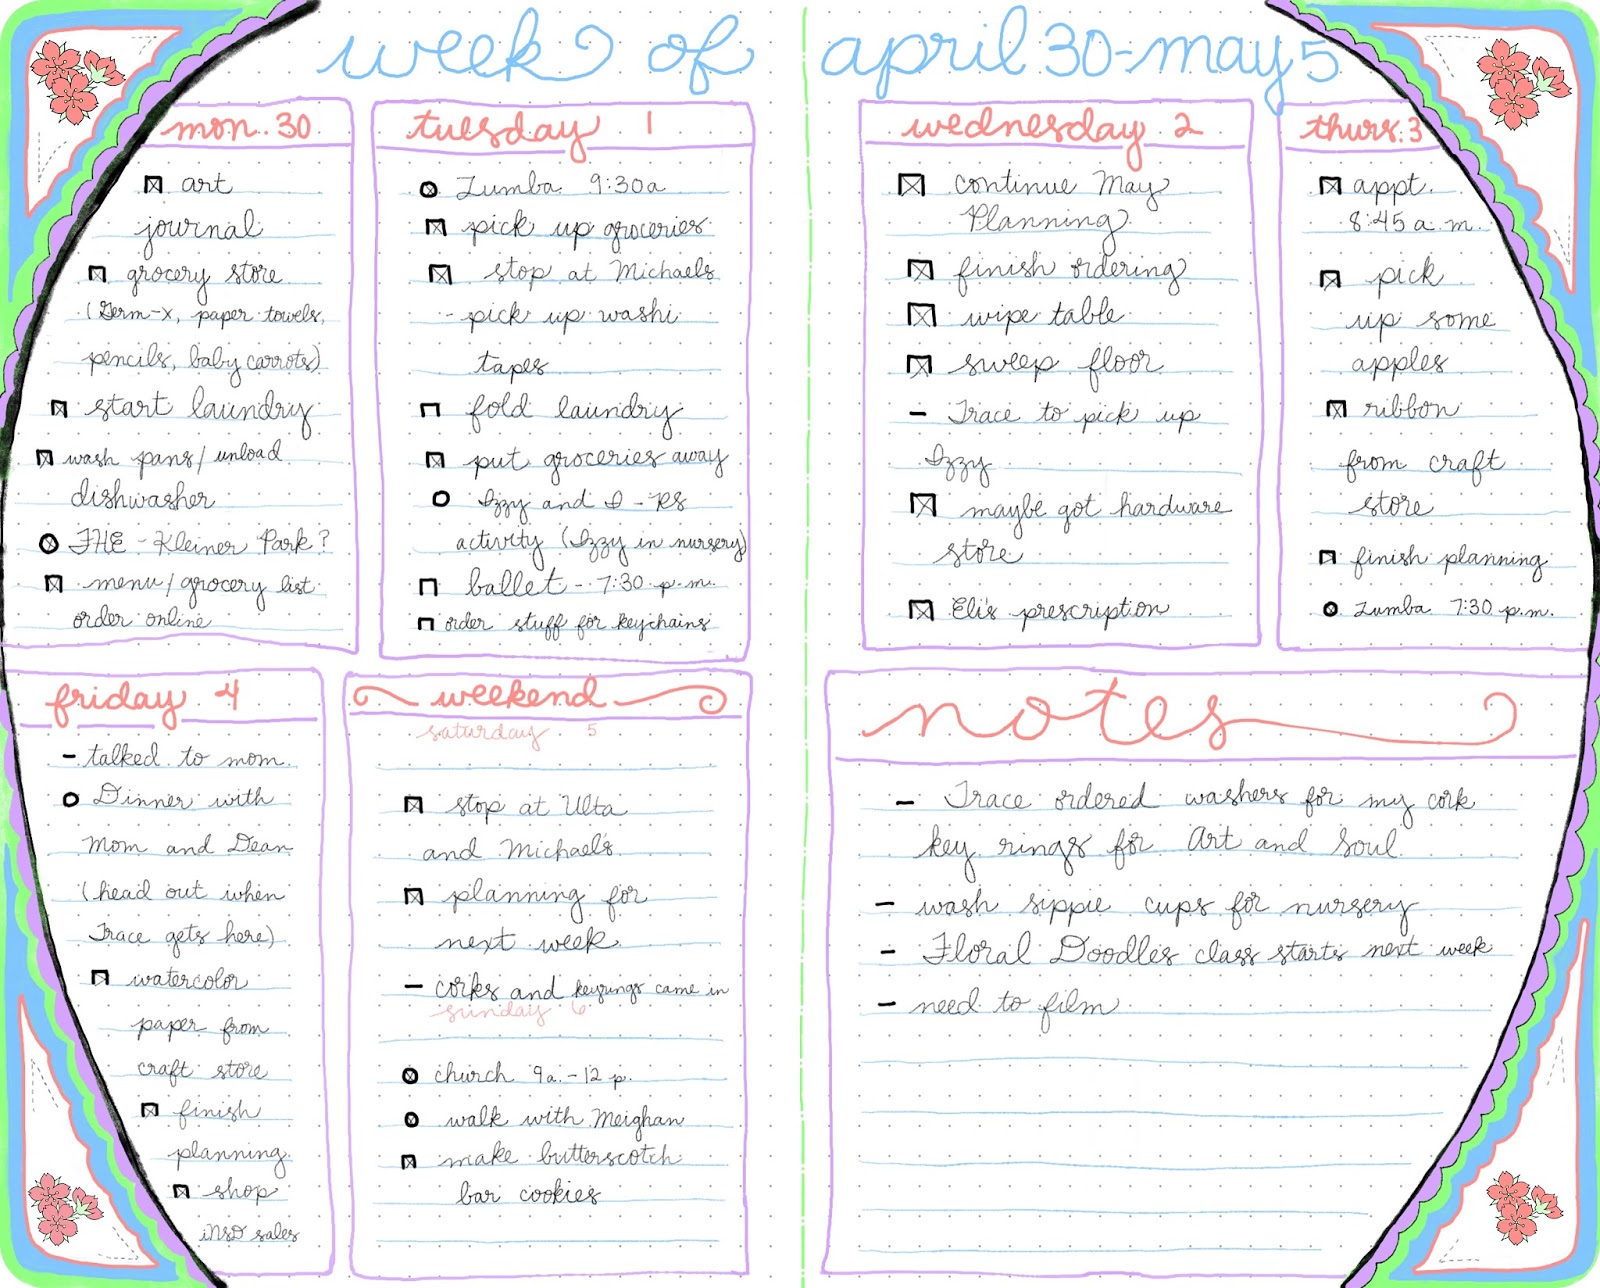 week of april 30-may 5
mon. 30
art
journal
grocery store
(Germ-x, paper towels,
pencils, baby carrots)
start laundry
wash pans/unload
dishwasher
FHE - Kleiner Park?
menu/grocery list
order online
tuesday 1
Zumba 9:30a
pick up groceries
stop at Michaels
- pick up washi
tapes
fold laundry
put groceries away
Izzy and I - RS
activity (Izzy in nursery)
ballet - 7:30 p.m.
order stuff for keychains
wednesday 2
continue May
Planning
finish ordering
wipe table
sweep floor
- Trace to pick up
Izzy
maybe got hardware
store
Eli's prescription
thurs. 3
appt.
8:45 a.m.
pick
up some
apples
ribbon
from craft
store
finish planning
Zumba 7:30 p.m.
friday 4
- talked to mom
Dinner with
Mom and Dean
(head out when
Trace gets here)
watercolor
paper from
craft store
finish
planning
shop
iNSD sales
weekend
saturday 5
stop at Ulta
and Michaels
planning for
next week
- corks and keyrings came in
sunday 6
church 9a.-12 p.
walk with Meighan
make butterscotch
bar cookies
notes
- Trace ordered washers for my cork
key rings for Art and Soul
- wash sippie cups for nursery
- Floral Doodles class starts next week
- need to film